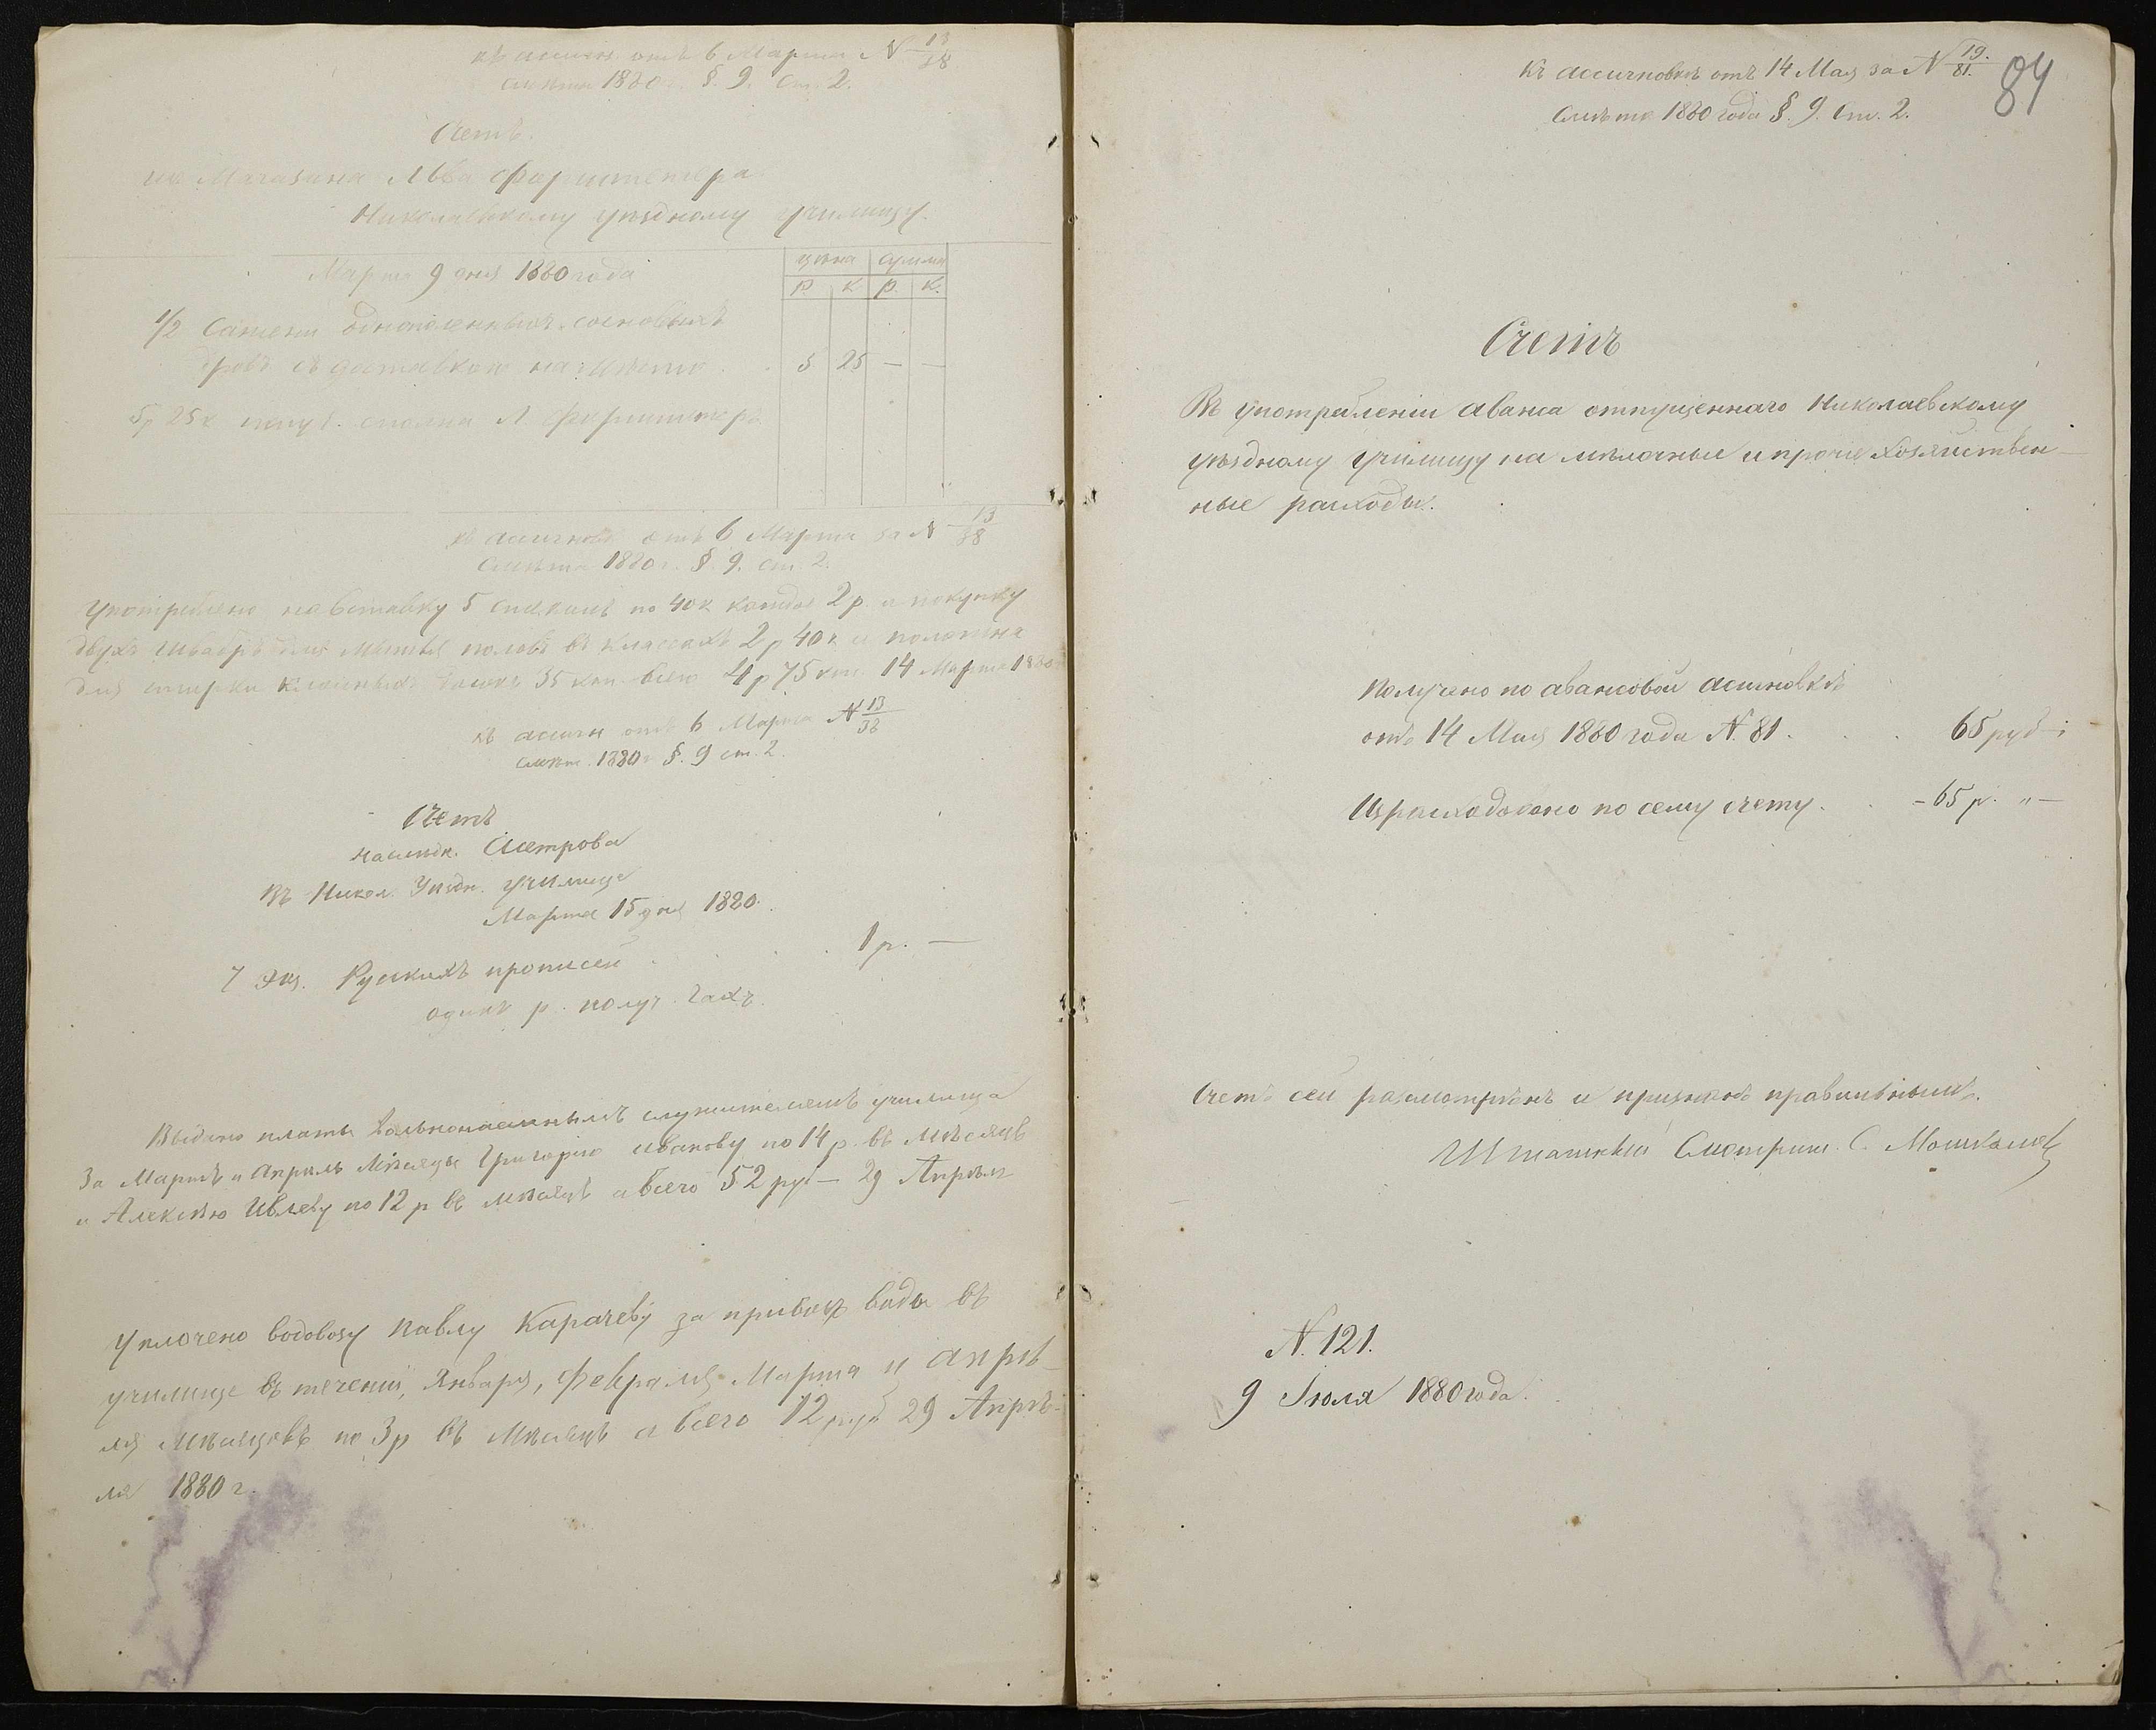 къ ассигн. отъ 6 Марта N 13/38
смѣты 1880 г. §. 9. Ст. 2.
Счетъ.
изъ Магазина Льва
Николаевскому уѣздному училищу.
Марта 9 дня 1880 года
цѣна сумма
р. к. р. к.
1/2 Сажени однополенныхъ сосновыхъ
дровъ съ доставкою на мѣсто . . 5 25 — —
5 р 25 к получ. сполна Л.
къ ассигновк отъ 6 Марта за N 13/38
Смѣта 1880 г. §. 9. ст. 2.
Употреблено на вставку 5 стеколъ по 40 к каждое 2 р. и покупку
двухъ швабръ для мытья половъ въ классахъ 2 р 40 к и
для стирки классныхъ досокъ 35 коп. всего 4 р 75 коп. 14 Марта 1880
къ ассигн отъ 6 Марта N 13/38
смѣт. 1880 г §. 9 ст. 2.
Счетъ
наслѣдн.
Въ Никол. Уѣздн. училище
Марта 15 дня 1880.
7 экз. Русскихъ прописей . . . 1 р. —
одинъ р. получ.
Выдано платы вольнонаемнымъ служителямъ училища
За Мартъ и Апрѣль Мѣсяцы Григорію Иванову по 14 р. въ Мѣсяцъ
и Алексѣю Ивлеву по 12 р въ мѣсяцъ а всего 52 руб — 29 Апрѣля
Уплочено водовозу Павлу Карачеву за привозъ воды въ
училище въ теченіи, Января, Февраля, Марта и Апрѣ-
ля Мѣсяцовъ по 3 р въ Мѣсяцъ а всего 12 руб 29 Апрѣ-
ля 1880 г.
Къ ассигновкѣ отъ 14 Мая за N 19./81.
84
Смѣта 1880 года §. 9. Ст. 2.
Счетъ
Въ употребленіи аванса отпущеннаго Николаевскому
уѣздному училищу на мѣлочные и прочіе хозяйствен-
ные расходы.
Получено по авансовой асигновкѣ
отъ 14 Мая 1880 года N. 81 . . . 65 руб —
Израсходовано по сему счету . . – 65 р. „ —
Счетъ сей разсмотрѣнъ и признанъ правильнымъ.
Штатный Смотритель С.
N. 121.
9 Іюля 1880 года.